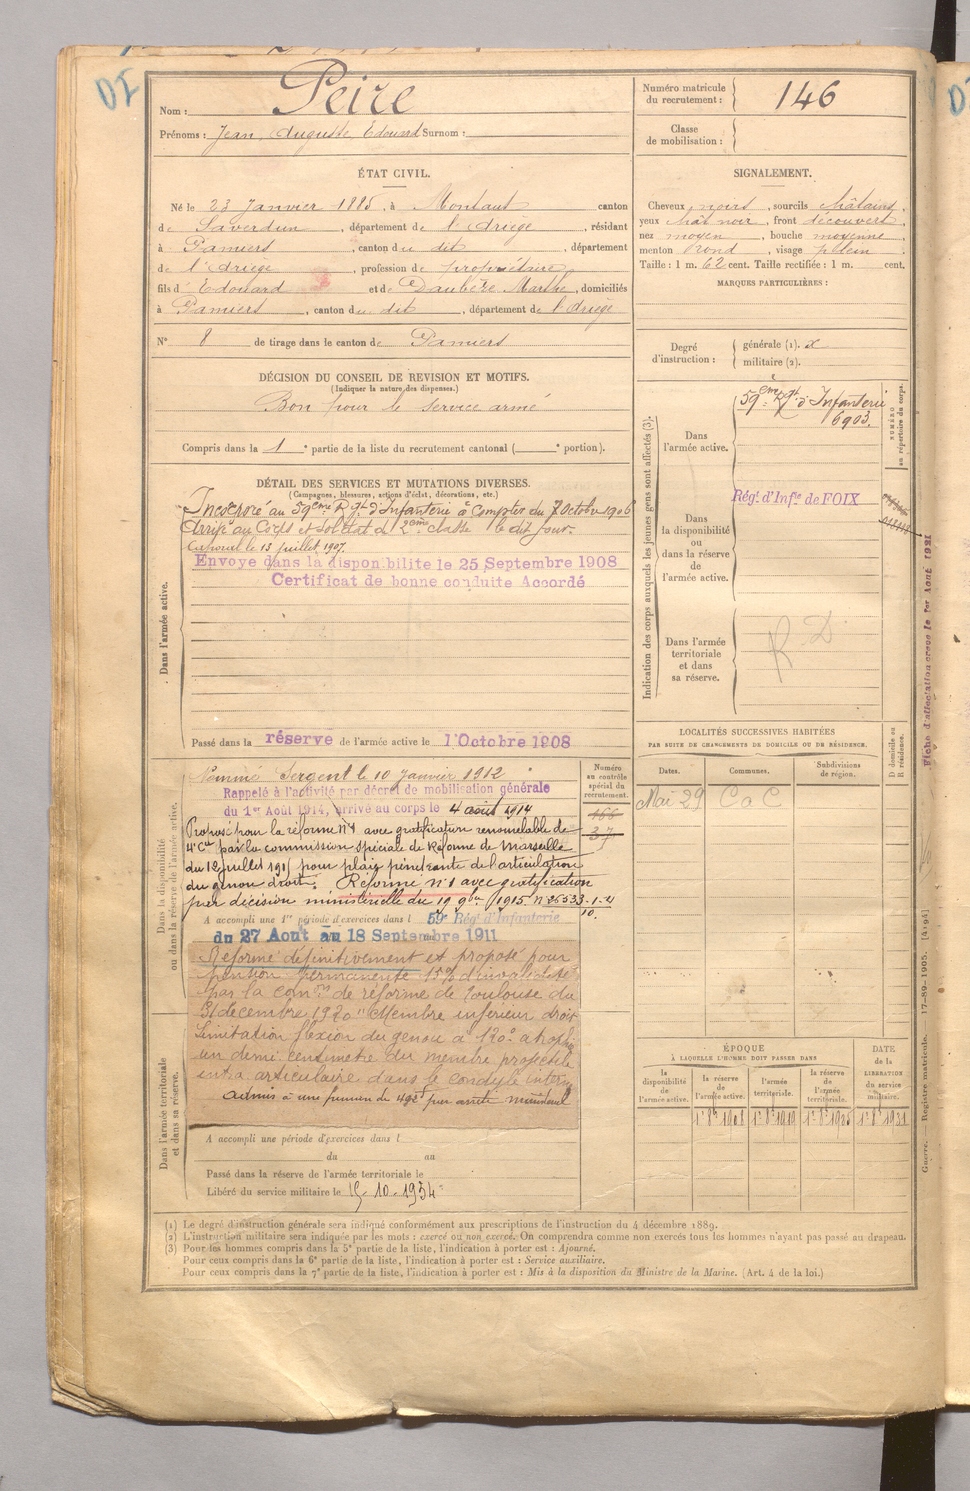 DI
Nom : Peire
Prénoms : Jean, Auguste, Edouard Surnom :
Numéro matricule du recrutement : 146
Classe de mobilisation :
ÉTAT CIVIL.
Né le 23 Janvier 1885, à Montaut canton
de Saverdun, département de l'Ariège, résidant
à Pamiers, canton du dit, département
de l'Ariège, profession de propriétaire
fils d'Edouard et de Daubère Marthe, domiciliés
à Pamiers, canton du dit, département de l'Ariège
N° 8 de tirage dans le canton de Pamiers
SIGNALEMENT.
Cheveux noirs, sourcils châtains
yeux chât noir, front découvert
nez moyen, bouche moyenne
menton rond, visage plein
Taille : 1 m. 62 cent. Taille rectifiée : 1 m. cent.
MARQUES PARTICULIÈRES :
Degré d'instruction :
générale (1).
militaire (2).
DÉCISION DU CONSEIL DE REVISION ET MOTIFS.
(Indiquer la nature des dispenses.)
Bon pour le service armé
Compris dans la 1e partie de la liste du recrutement cantonal ( e portion).
DÉTAIL DES SERVICES ET MUTATIONS DIVERSES.
(Campagnes, blessures, actions d'éclat, décorations, etc.)
Dans l'armée active.
Incorporé au 59eme Rgt d'Infanterie à Compter du 7 Octobre 1906
Arrivé au Corps et soldat de 2eme classe le dit jour.
Caporal le 13 juillet 1907.
Envoye dans la disponibilite le 25 Septembre 1908
Certificat de bonne conduite Accordé
Passé dans la réserve de l'armée active le 1 Octobre 1908
Dans la disponibilité ou dans la réserve de l'armée active.
Nommé Sergent le 10 Janvier 1912
Rappelé à l'activité par décret de mobilisation générale
du 1er Août 1914, arrivé au corps le 4 août 1914
Proposé pour la réforme n°1 avec gratification renouvelable de
4e Cie par la commission spéciale de Réforme de Marseille
du 12 juillet 1915 pour plaie pénétrante de l'articulation
du genou droit. Réformé n°1 avec gratification
par décision ministérielle du 19 9bre 1915.
A accompli une 1re période d'exercices dans l 59e Rég. d'Infanterie
du 27 Aout au 18 Septembre 1911
Réformé définitivement et proposé pour
pension permanente 15% d'invalidité
par la comon de réforme de Toulouse du
31 décembre 1920 "Membre inférieur droit
limitation flexion du genou à 120°
un demi centimètre du membre projectile
intra articulaire dans le condyle
Admis à une pension de par arrêté
Numéro au contrôle spécial du recrutement.
166
37
Dans l'armée territoriale et dans sa réserve.
A accompli une période d'exercices dans l
du au
Passé dans la réserve de l'armée territoriale le
Libéré du service militaire le 15-10-1934
Indication des corps auxquels les jeunes gens sont affectés (3).
Dans l'armée active.
59eme Rgt d'Infanterie
6903.
NUMÉRO au répertoire du corps.
Dans la disponibilité ou dans la réserve de l'armée active.
Régt d'Infie de FOIX
Dans l'armée territoriale et dans sa réserve.
R D
Fiche d'affectation créée le 1er Août 1921
LOCALITÉS SUCCESSIVES HABITÉES
PAR SUITE DE CHANGEMENTS DE DOMICILE OU DE RÉSIDENCE.
Dates.
Communes.
Subdivisions de région.
D domicile ou R résidence.
Mai 29 C a C
ÉPOQUE
À LAQUELLE L'HOMME DOIT PASSER DANS
la disponibilité de l'armée active.
la réserve de l'armée active.
l'armée territoriale.
la réserve de l'armée territoriale.
DATE de la LIBÉRATION du service militaire.
1er 8bre 1908
Guerre. — Registre matricule. 17-89-1905. [4194]
(1) Le degré d'instruction générale sera indiqué conformément aux prescriptions de l'instruction du 4 décembre 1889.
(2) L'instruction militaire sera indiquée par les mots : exercé ou non exercé. On comprendra comme non exercés tous les hommes n'ayant pas passé au drapeau.
(3) Pour les hommes compris dans la 5e partie de la liste, l'indication à porter est : Ajourné.
Pour ceux compris dans la 6e partie de la liste, l'indication à porter est : Service auxiliaire.
Pour ceux compris dans la 7e partie de la liste, l'indication à porter est : Mis à la disposition du Ministre de la Marine. (Art. 4 de la loi.)